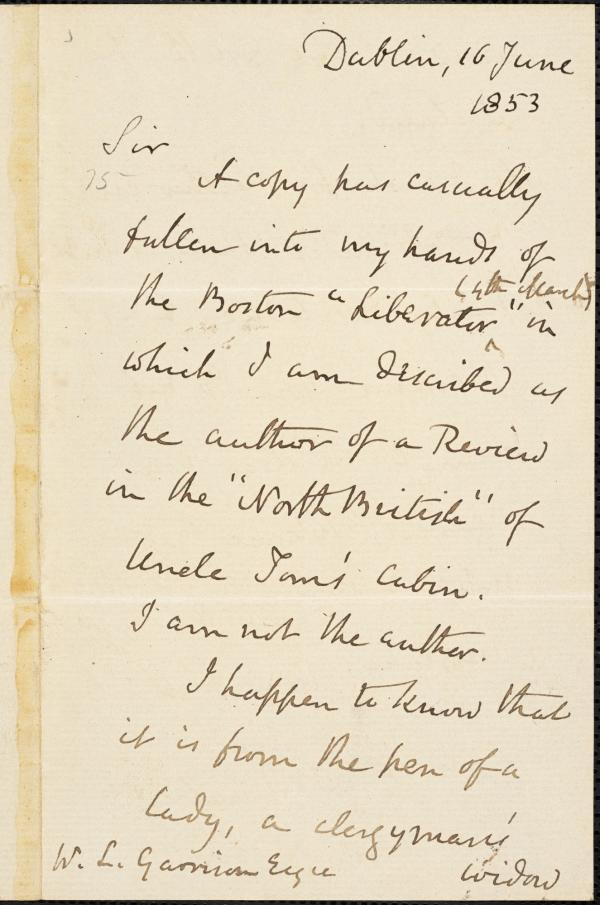 Dublin, 16 June
1853
Sir
75
A copy has casually
fallen into my hands of
the Boston "Liberator" (4th March) in
which I am described as
the author of a Review
in the "North British" of
Uncle Tom's Cabin.
I am not the author.
I happen to know that
it is from the pen of a
lady, a clergyman's
widow
W. L. Garrison Esqre